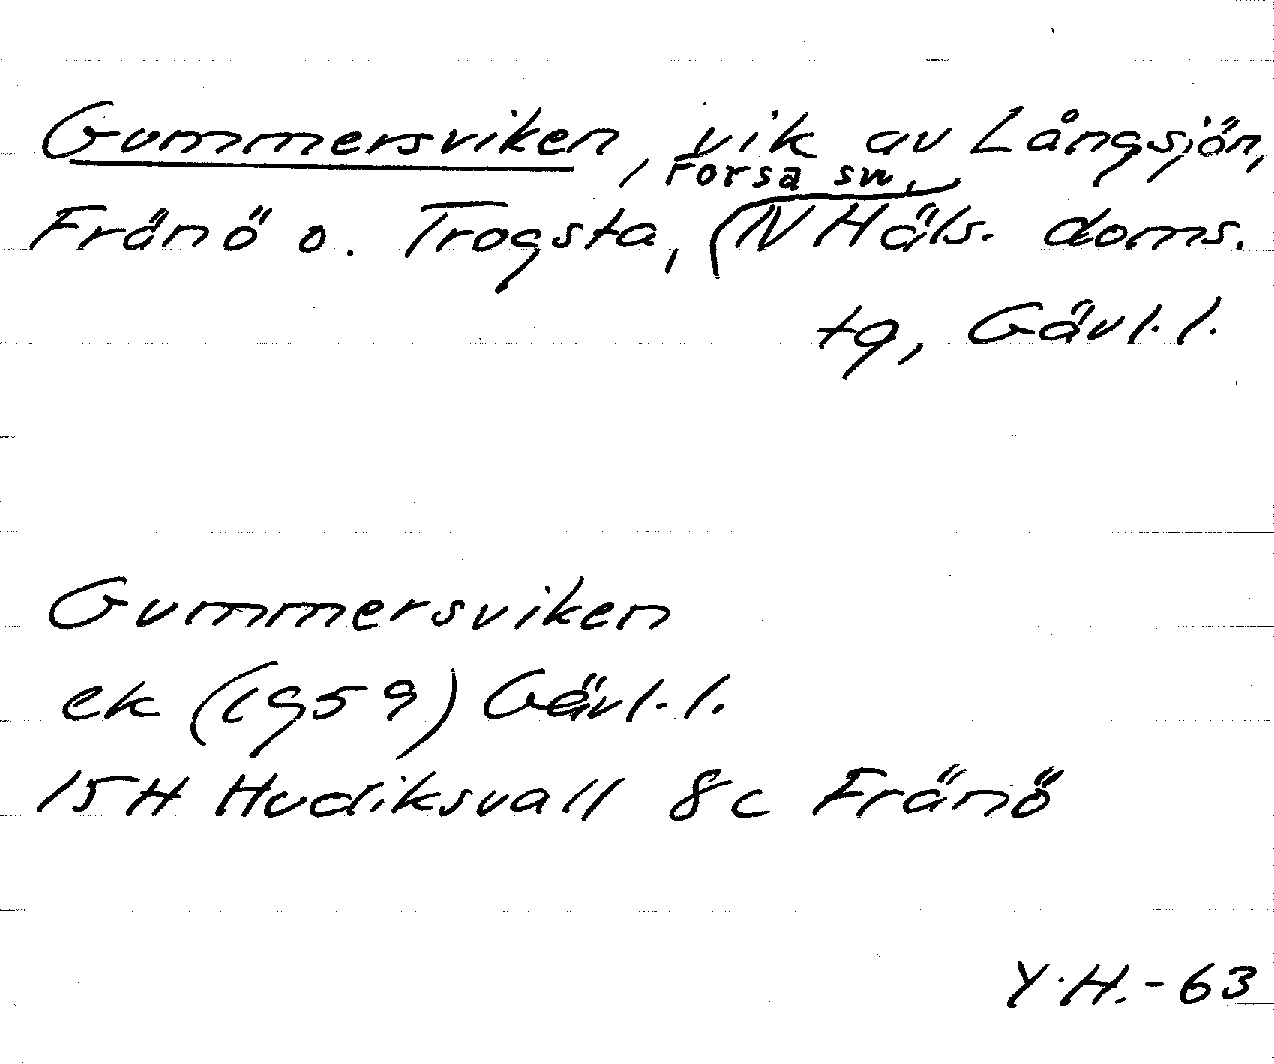 Gummersviken, vik av Långsjön,
Forsa sn,
Fränö o. Trogsta, N Häls. doms.
tg, Gävl. l.
Gummersviken
ek (1959) Gävl. l.
15H Hudiksvall 8c Fränö
Y.H.-63